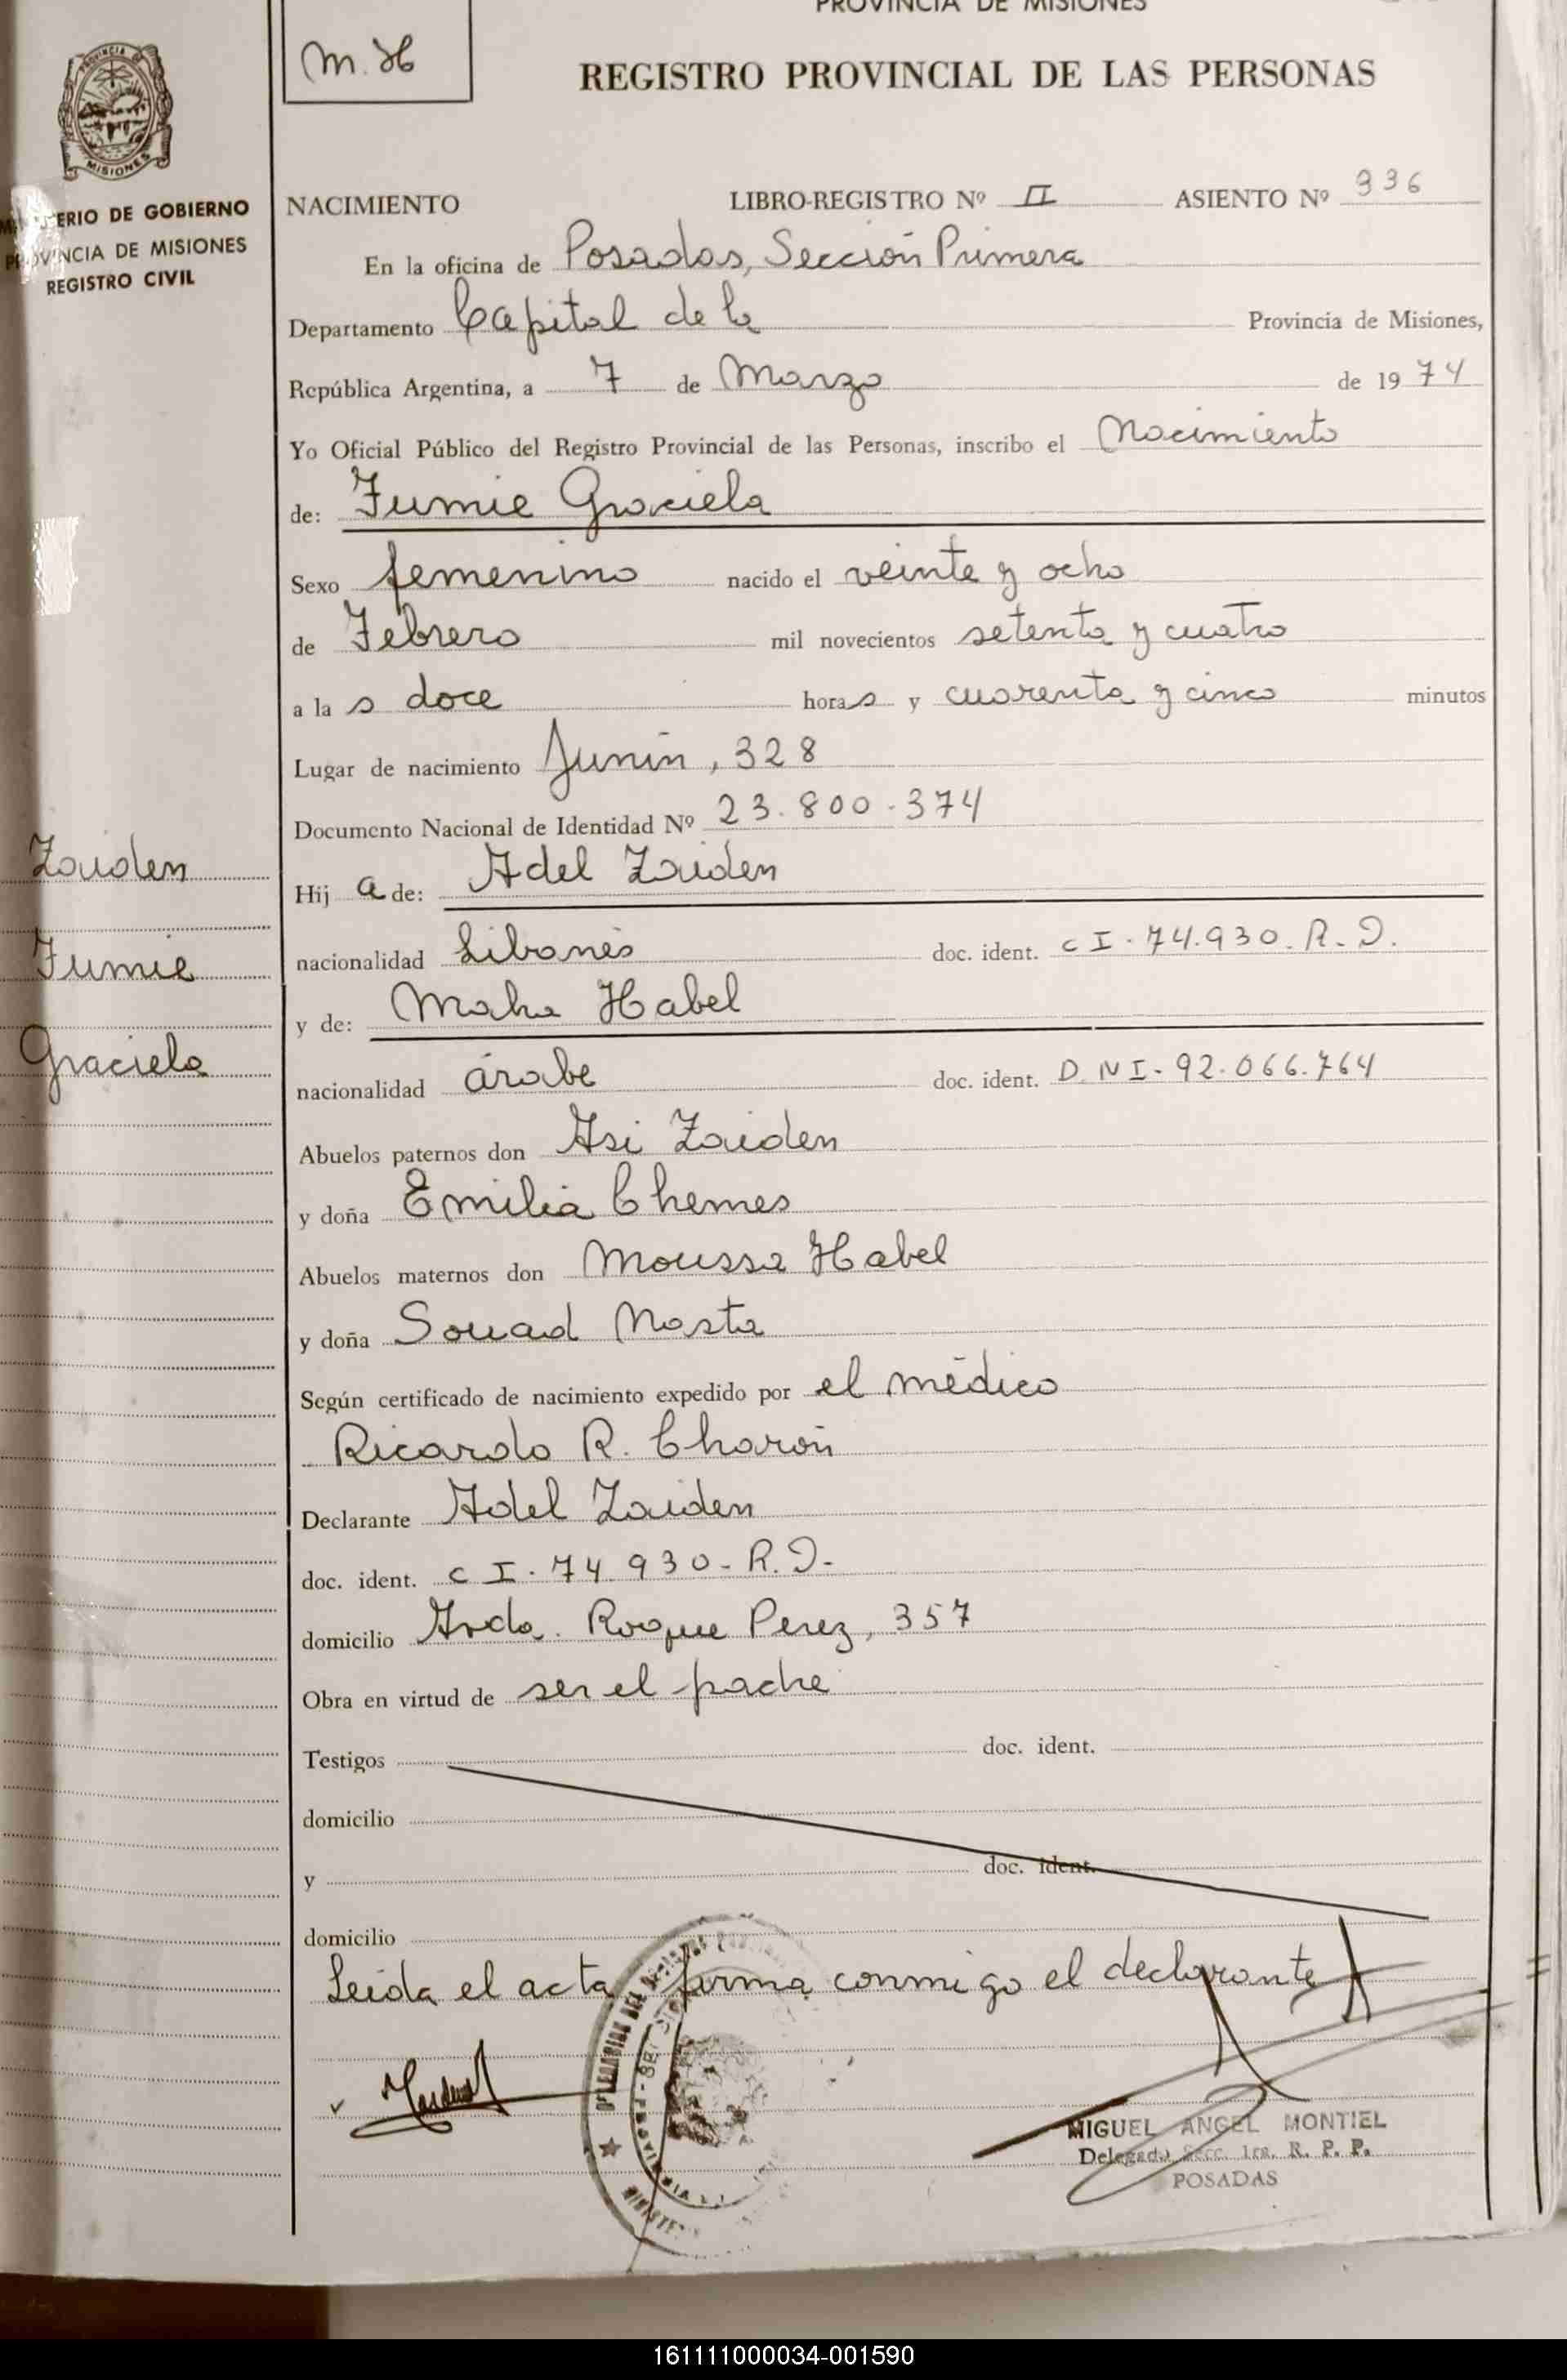 PROVINCIA DE MISIONES
m. H
REGISTRO PROVINCIAL DE LAS PERSONAS
MISIONES
MINISTERIO DE GOBIERNO
PROVINCIA DE MISIONES
REGISTRO CIVIL
NACIMIENTO LIBRO-REGISTRO Nº II ASIENTO Nº 936
En la oficina de Posadas, Sección Primera
Departamento Capital de la Provincia de Misiones,
República Argentina, a 7 de Marzo de 1974
Yo Oficial Público del Registro Provincial de las Personas, inscribo el Nacimiento
de: Fumie Graciela
Sexo femenino nacido el veinte y ocho
de Febrero mil novecientos setenta y cuatro
a las doce horas y cuarenta y cinco minutos
Lugar de nacimiento Junín, 328
Documento Nacional de Identidad Nº 23.800.374
Zaiden
Hija de: Adel Zaiden
Fumie
nacionalidad Libanés doc. ident. C I. 74.930. R. D.
y de: Maha Habel
Graciela
nacionalidad árabe doc. ident. D N I - 92.066.764
Abuelos paternos don Asi Zaiden
y doña Emilia Chemes
Abuelos maternos don Moussa Habel
y doña Souad Nasta
Según certificado de nacimiento expedido por el médico
Ricardo R. Charón
Declarante Adel Zaiden
doc. ident. C I. 74 930 - R. D.
domicilio Avda. Roque Perez, 357
Obra en virtud de ser el padre
Testigos doc. ident.
domicilio
y doc. ident.
domicilio
Leída el acta firma conmigo el declarante
MIGUEL ANGEL MONTIEL
Delegado Secc. 1ra. R. P. P.
POSADAS
161111000034-001590